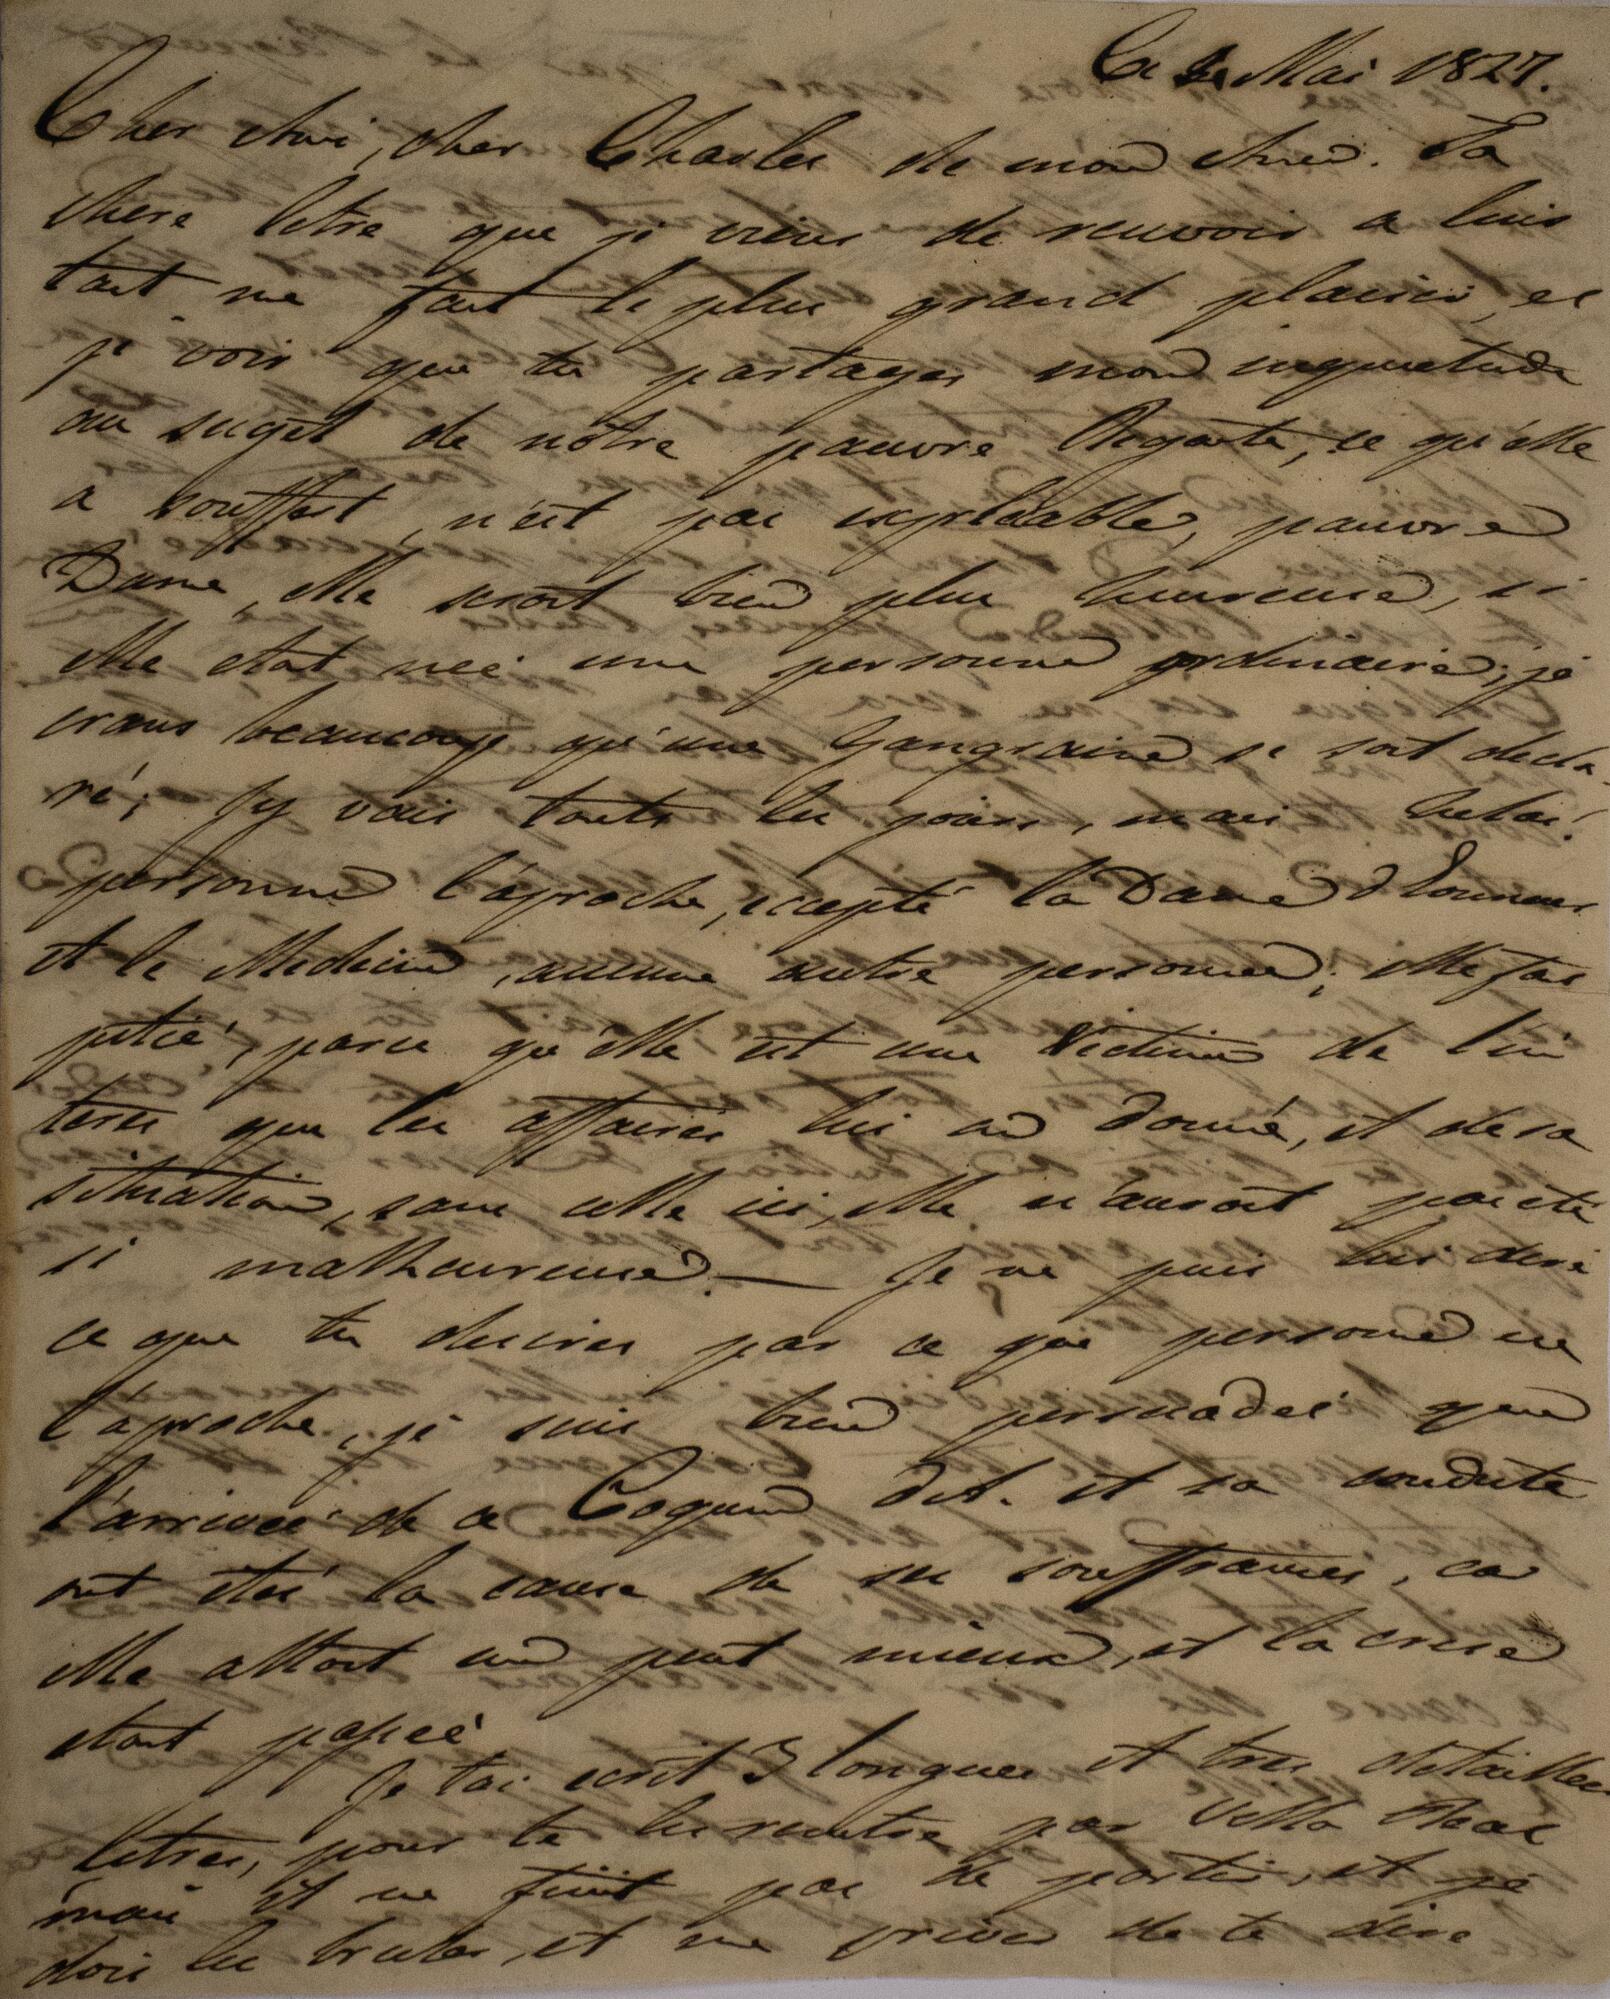 Ce 2 Mai 1827.
Cher Ami, cher Charles de mon Ame. Ta
chere letre que je viens de reuvoir a linis
tant me fait le plus grand plaisir, et
je vois que tu partages mon inquietude
au suget de nôtre pauvre Regante, ce qu'elle
a souffert, n'est pas expleable, pauvre
Dame, elle seroit bien plus heureuse, si
elle etat neé une personne ordinaire; je
crains beaucoup qu'une Gangraine se soit decla-
ré; jy vais touts les jours, mais helas!
personne l'aproche, excepté la Dame d'honneur
et le Medecin, aucune autre personne; elle fai
pitié, parce qu'elle est une Victime de lin
teres que les affaires lui on donné, et de sa
situation, sans celle ici, elle n'auroit pas eté
si malheureuse. — Je ne puis lui dire
ce que tu desires par ce que personne ne
l'aproche, je suis bien persuadeé que
l'arriveé de ce Coquin d'A. et sa conduite
ont eteé la cause de ses souffrances, car
elle alloit un peut mieux, et la crise
etant passeé
Je tai ecrit 3 longues et tres detaillees
letres, pour te les remetre par Villa Real
mais il ne finit pas de partir, et je
dois les bruler, et me priver de te dire